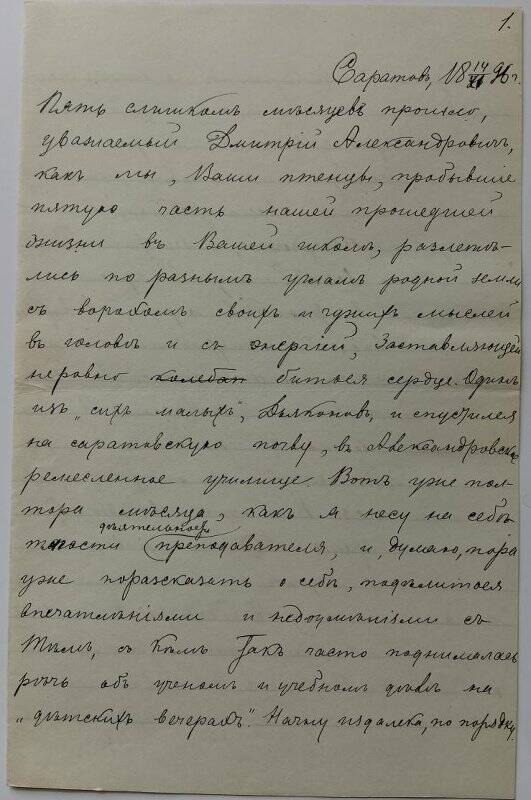 1.
Саратовъ, 18 14/XI 96 г.
Пять слишкомъ мѣсяцевъ прошло,
уважаемый Дмитрій Александровичъ,
какъ мы, Ваши птенцы, пробывшіе
пятую часть нашей прошедшей
жизни въ Вашей школѣ, разлетѣ-
лись по разнымъ угламъ родной земли
съ ворохомъ своихъ и чужихъ мыслей
въ головѣ и съ энергіей, заставляющей
неровно колебат биться сердце. Одинъ
изъ „сихъ малыхъ", Дьяконовъ, и спустился
на саратовскую почву, въ Александровское
ремесленное училище. Вотъ уже пол-
тора мѣсяца, какъ я несу на себѣ
дѣятельности
тягости преподавателя, и, думаю, пора
уже поразсказать о себѣ, подѣлиться
впечатлѣніями и недоумѣніями съ
Тѣмъ, съ кѣмъ такъ часто поднималась
рѣчь объ ученомъ и учебномъ дѣлѣ на
„дѣтскихъ вечерахъ". Начну издалека, по порядку.